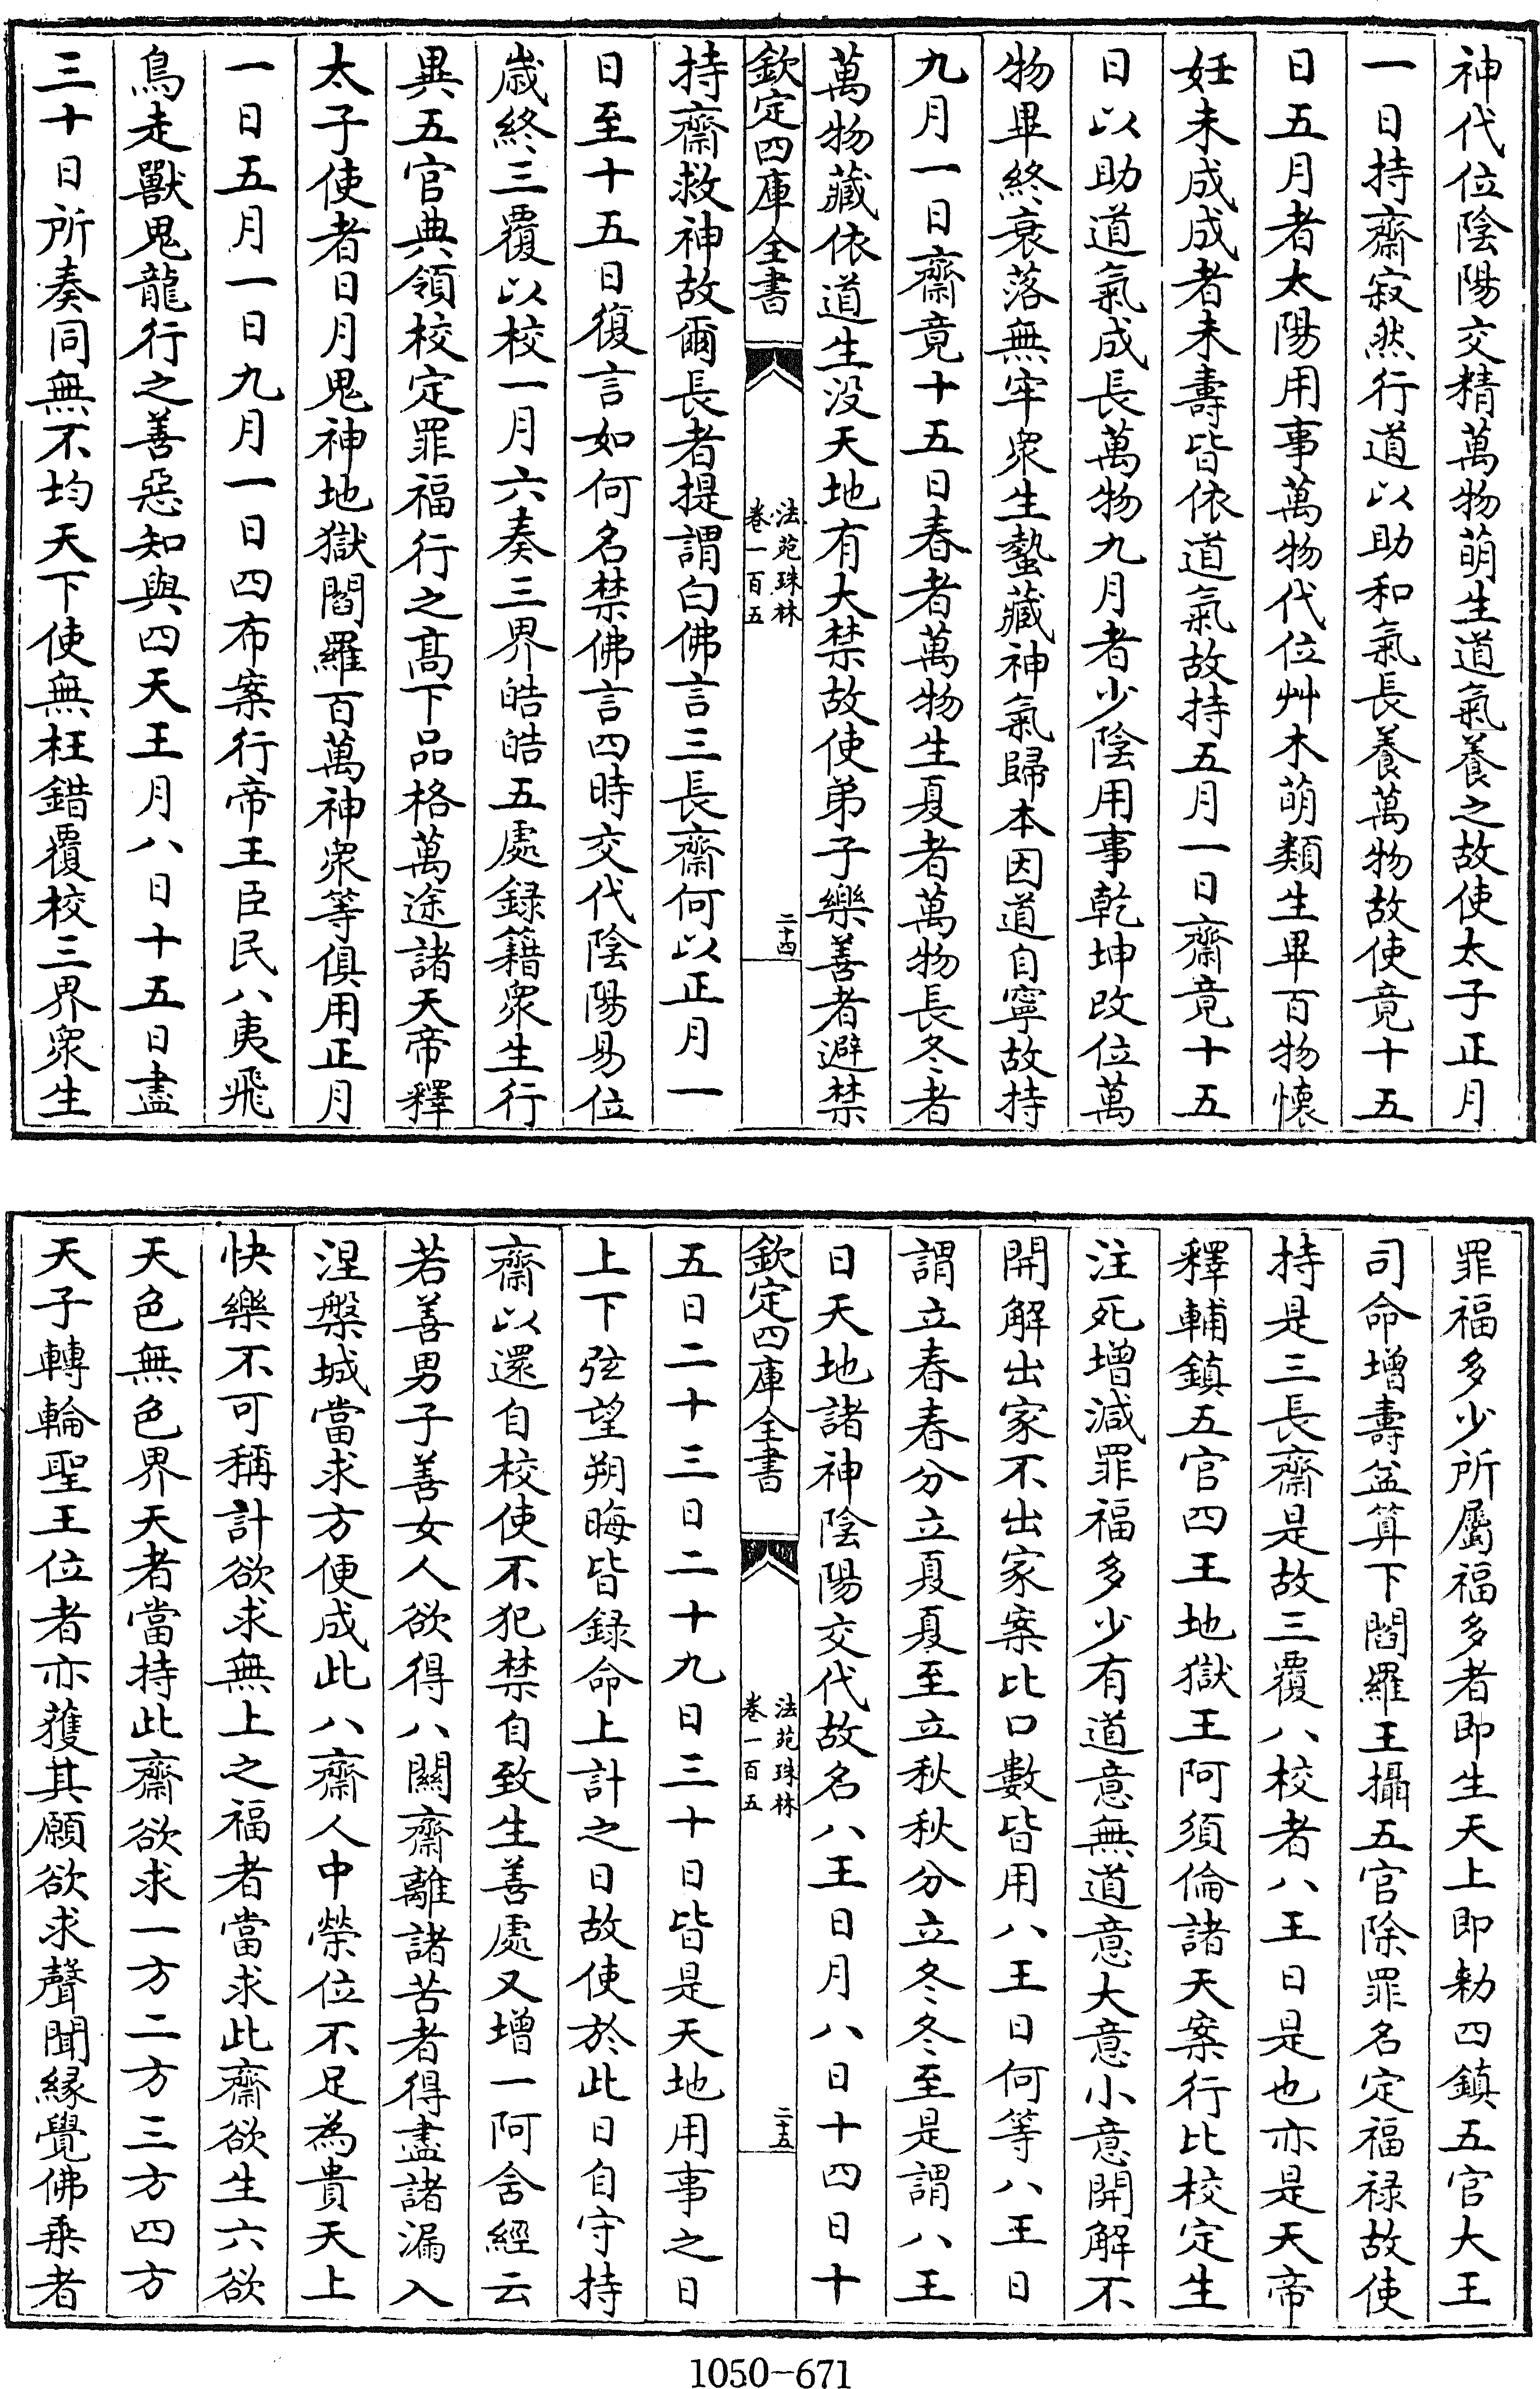 神代位陰陽交精萬物萌生道氣養之故使太子正月
一日持齋寂然行道以助和氣長養萬物故使竟十五
日五月者太陽用事萬物代位艸木萌類生畢百物懷
妊未成成者未壽皆依道氣故持五月一日齋竟十五
日以助道氣成長萬物九月者少陰用事乾坤改位萬
物畢終衰落無牢衆生蟄藏神氣歸本因道自寧故持
九月一日齋竟十五日春者萬物生夏者萬物長冬者
萬物藏依道生没天地有大禁故使弟子樂善者避禁
欽定四庫全書
法苑珠林
卷一百五
二十四
持齋救神故爾長者提謂白佛言三長齋何以正月一
日至十五日復言如何名禁佛言四時交代陰陽易位
歳終三覆以校一月六奏三界皓皓五處録籍衆生行
異五官典領校定罪福行之髙下品格萬途諸天帝釋
太子使者日月鬼神地獄閻羅百萬神衆等俱用正月
一日五月一日九月一日四布案行帝王臣民八夷飛
鳥走獸鬼龍行之善惡知與四天王月八日十五日盡
三十日所奏同無不均天下使無枉錯覆校三界衆生
罪福多少所屬福多者即生天上即勅四鎮五官大王
司命增壽益算下閻羅王攝五官除罪名定福禄故使
持是三長齋是故三覆八校者八王日是也亦是天帝
釋輔鎮五官四王地獄王阿須倫諸天案行比校定生
注死增減罪福多少有道意無道意大意小意開解不
開解出家不出家案比口數皆用八王日何等八王日
謂立春春分立夏夏至立秋秋分立冬冬至是謂八王
日天地諸神陰陽交代故名八王日月八日十四日十
欽定四庫全書
法苑珠林
卷一百五
二十五
五日二十三日二十九日三十日皆是天地用事之日
上下弦望朔晦皆録命上計之日故使於此日自守持
齋以還自校使不犯禁自致生善處又增一阿含經云
若善男子善女人欲得八關齋離諸苦者得盡諸漏入
涅槃城當求方便成此八齋人中榮位不足為貴天上
快樂不可稱計欲求無上之福者當求此齋欲生六欲
天色無色界天者當持此齋欲求一方二方三方四方
天子轉輪聖王位者亦獲其願欲求聲聞緣覺佛乗者
1050-671